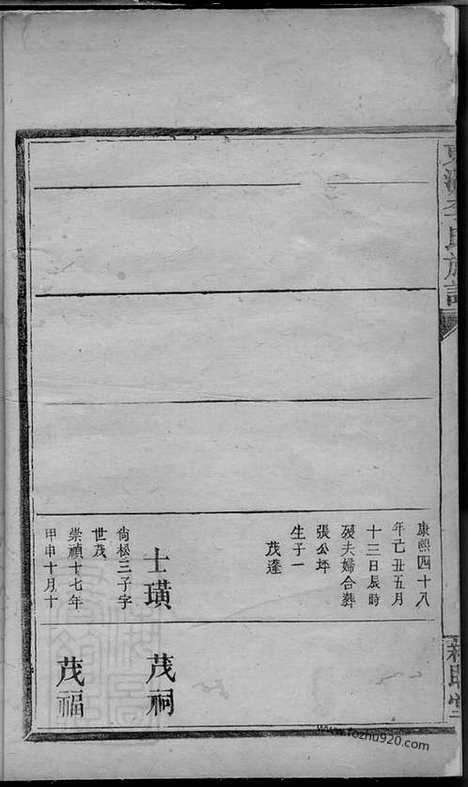 康熙四十八
年己丑五月
十三日辰時
歿夫婦合葬
張公坪
生子一
茂逢
士璜
尚松三子字
世茂
崇禎十七年
甲申十月十
茂祠
茂福
李氏族譜
www.fozhu920.com